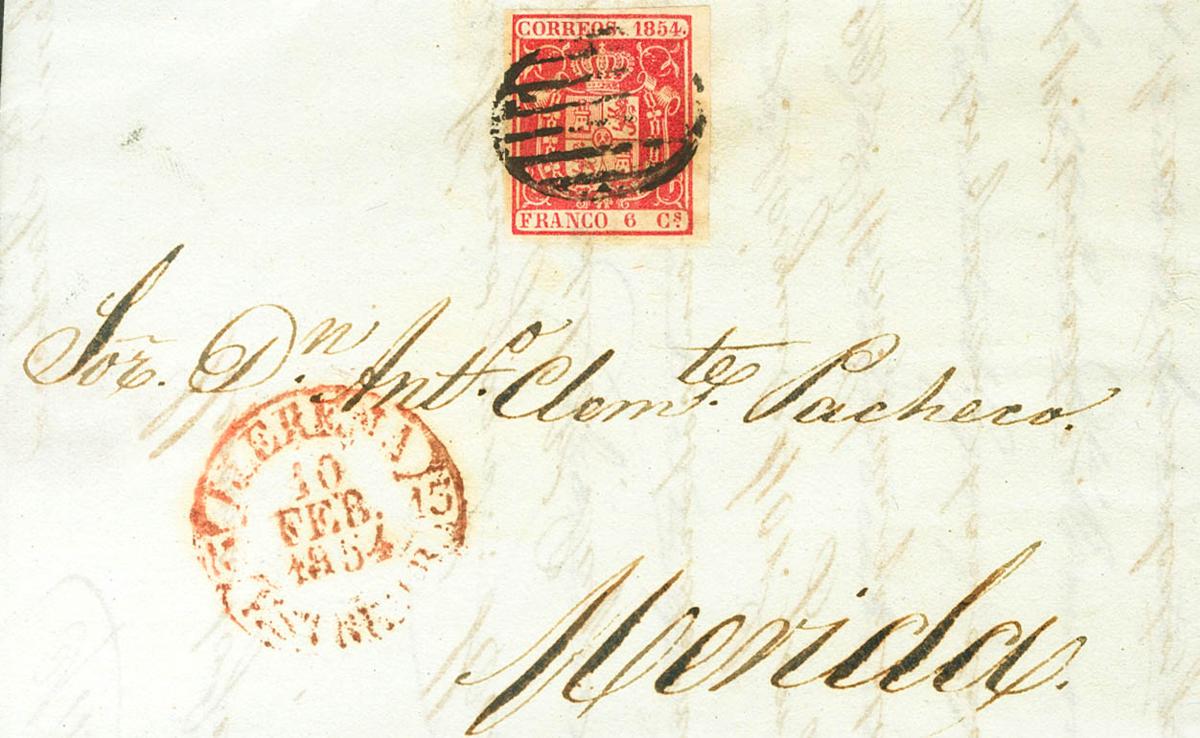 CORREOS. 1854.
FRANCO 6 Cs.
Sor. Dn. Anto. Clemte. Pacheco.
LLERENA
10
FEB.
1854
15
Merida.